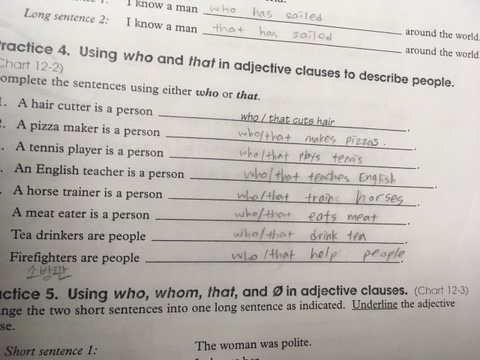 I know a man who has sailed
Long sentence 2: I know a man that has sailed around the world.
around the world.
ractice 4. Using who and that in adjective clauses to describe people.
Chart 12-2)
omplete the sentences using either who or that.
. A hair cutter is a person who / that cuts hair.
. A pizza maker is a person who/that makes pizzas.
. A tennis player is a person who/that plays tennis.
. An English teacher is a person who/that teaches English.
. A horse trainer is a person who/that trains horses.
A meat eater is a person who/that eats meat.
Tea drinkers are people who/that drink tea.
Firefighters are people who/that help people
소방관
actice 5. Using who, whom, that, and Ø in adjective clauses. (Chart 12-3)
nge the two short sentences into one long sentence as indicated. Underline the adjective
se.
Short sentence 1: The woman was polite.